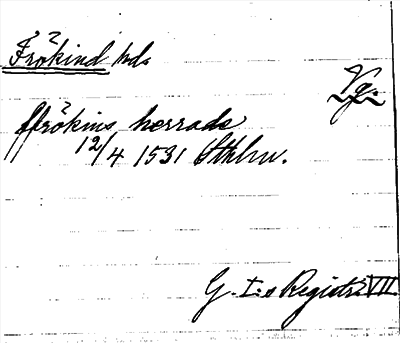 Frökind hd.
Vg.
ffrökins herrade
12/4 1531 Sthlm.
G. I:s Registr. VII.